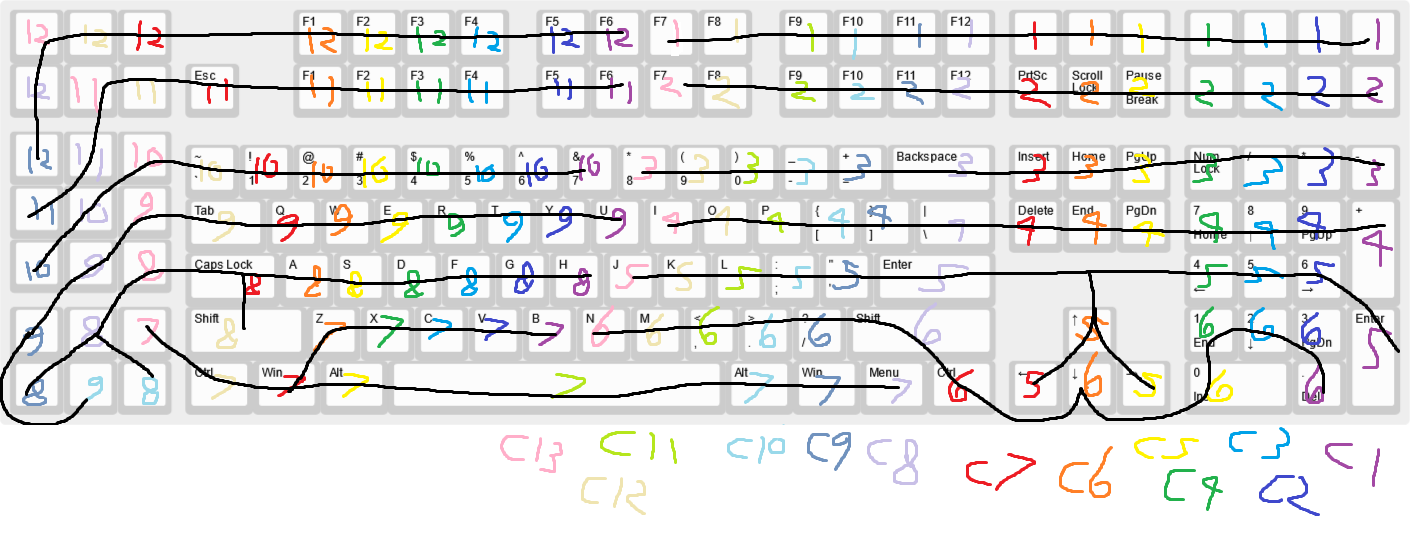 12 12 12 F1 12 F2 12 F3 12 F4 12 F5 12 F6 12 F7 1 F8 1 F9 1 F10 1 F11 1 F12 1 1 1 1 1 1 1 1
12 11 11 Esc 11 F1 11 F2 11 F3 11 F4 11 F5 11 F6 11 F7 2 F8 2 F9 2 F10 2 F11 2 F12 2 PrtSc 2 Scroll Lock 2 Pause Break 2 2 2 2 2
12 11 10 ~ ` 10 ! 1 10 @ 2 10 # 3 10 $ 4 10 % 5 10 ^ 6 10 & 7 10 * 8 3 ( 9 3 ) 0 3 _ - 3 + = 3 Backspace 3 Insert 3 Home 3 PgUp 3 Num Lock 3 / 3 * 3 - 3
11 10 9 Tab 9 Q 9 W 9 E 9 R 9 T 9 Y 9 U 9 I 4 O 4 P 4 { [ 4 } ] 4 | \ 4 Delete 4 End 4 PgDn 4 7 Home 4 8 ↑ 4 9 PgUp 4 + 4
10 9 8 Caps Lock 8 A 8 S 8 D 8 F 8 G 8 H 8 J 5 K 5 L 5 : ; 5 " ' 5 Enter 5 4 ← 5 5 5 6 → 5
9 8 7 Shift 8 Z 7 X 7 C 7 V 7 B 7 N 6 M 6 < , 6 > . 6 ? / 6 Shift 6 ↑ 5 1 End 6 2 ↓ 6 3 PgDn 6 Enter 5
8 9 8 Ctrl 7 Win 7 Alt 7 7 Alt 7 Win 7 Menu 7 Ctrl 6 ← 5 ↓ 6 → 5 0 Ins 6 . Del 6
C13 C12 C11 C10 C9 C8 C7 C6 C5 C4 C3 C2 C1